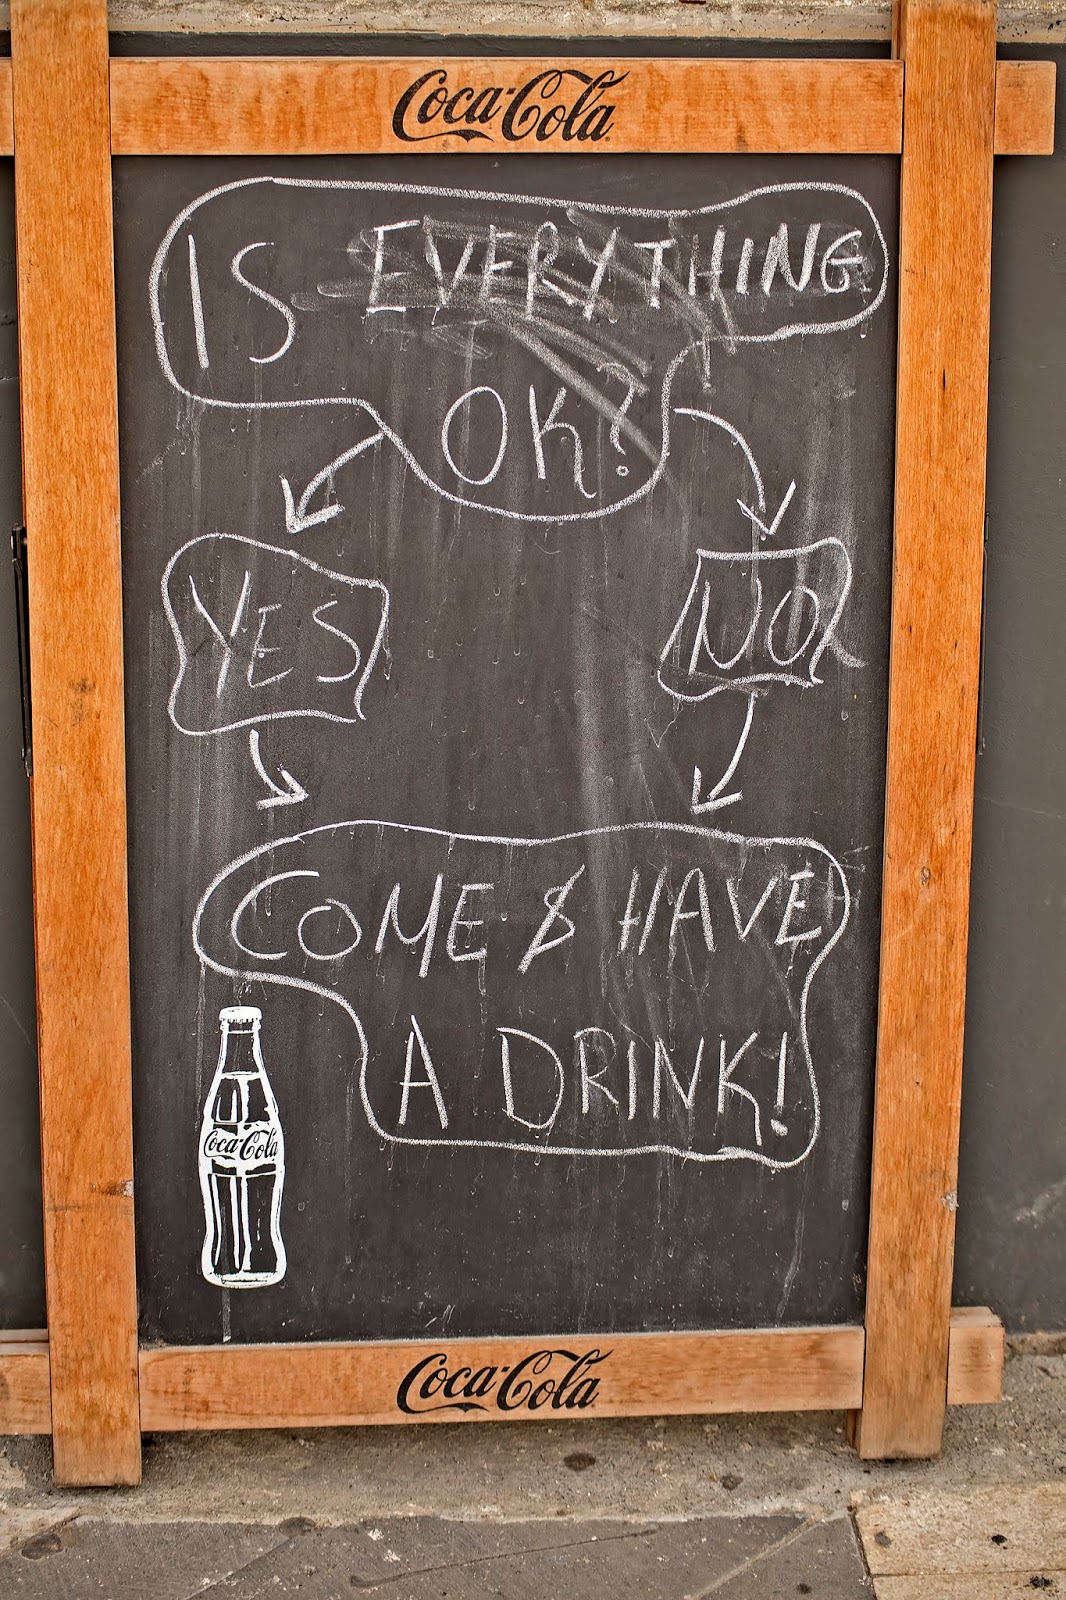 Coca-Cola
IS EVERYTHING
OK?
YES
NO
COME & HAVE
A DRINK!
Coca-Cola
Coca-Cola